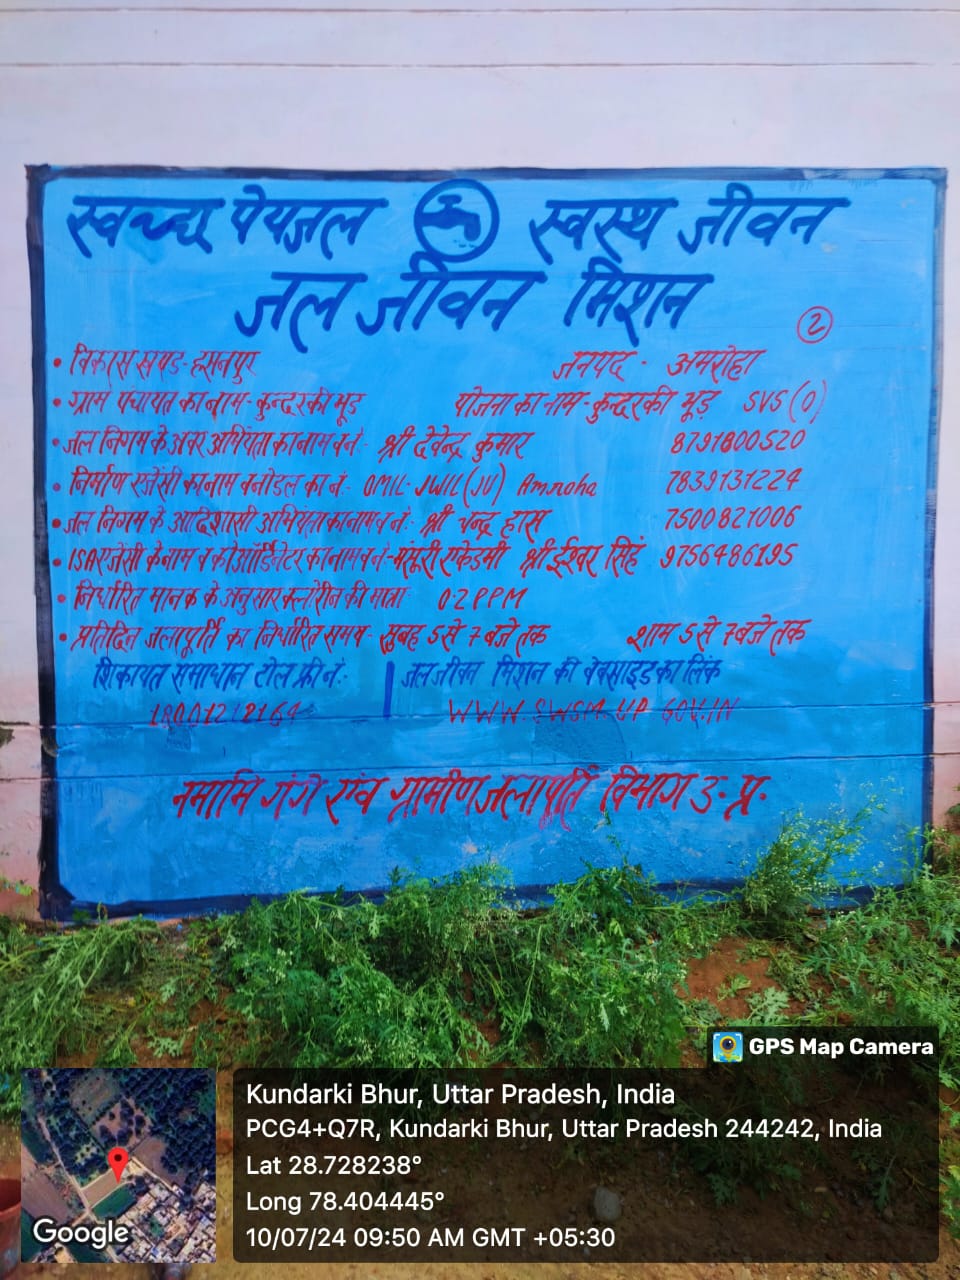 स्वच्छ पेयजल स्वस्थ जीवन
जल जीवन मिशन
2
• विकास खण्ड- हसनपुर जनपद - अमरोहा
• ग्राम पंचायत का नाम- कुन्दरकी भूड़ योजना का नाम- कुन्दरकी भूड़ SVS (O)
• जल निगम के अवर अभियंता का नाम व नं- श्री देवेन्द्र कुमार 8791800520
• निर्माण एजेंसी का नाम व नोडल का नं- OMIL-JWIL(JV) Amroha 7839131224
• जल निगम के अधिशासी अभियंता का नाम व नं:- श्री चन्द्र हास 7500821006
• ISA एजेंसी के नाम व कोऑर्डिनेटर का नाम व नं- मंसूरी एकेडमी श्री ईश्वर सिंह 9756486195
• निर्धारित मानक के अनुसार क्लोरीन की मात्रा 0.2 PPM
• प्रतिदिन जलापूर्ति का निर्धारित समय- सुबह 5 से 7 बजे तक शाम 5 से 7 बजे तक
शिकायत समाधान टोल फ्री नं:- जल जीवन मिशन की वेबसाइड का लिंक
WWW.SWSM.UP GOV.IN
नमामि गंगे एंव ग्रामीण जलापूर्ति विभाग उ. प्र.
GPS Map Camera
Kundarki Bhur, Uttar Pradesh, India
PCG4+Q7R, Kundarki Bhur, Uttar Pradesh 244242, India
Lat 28.728238°
Long 78.404445°
10/07/24 09:50 AM GMT +05:30
Google